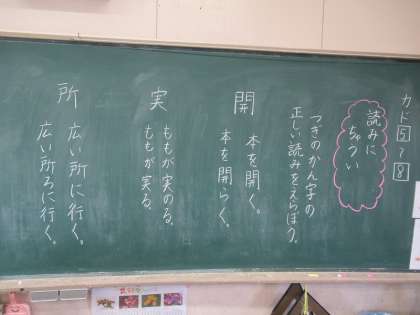 カド5〜8
読みに
ちゅうい
つぎのかん字の
正しい読みをえらぼう。
開
本を開く。
本を開らく。
実
ももが実のる。
ももが実る。
所
広い所に行く。
広い所ろに行く。